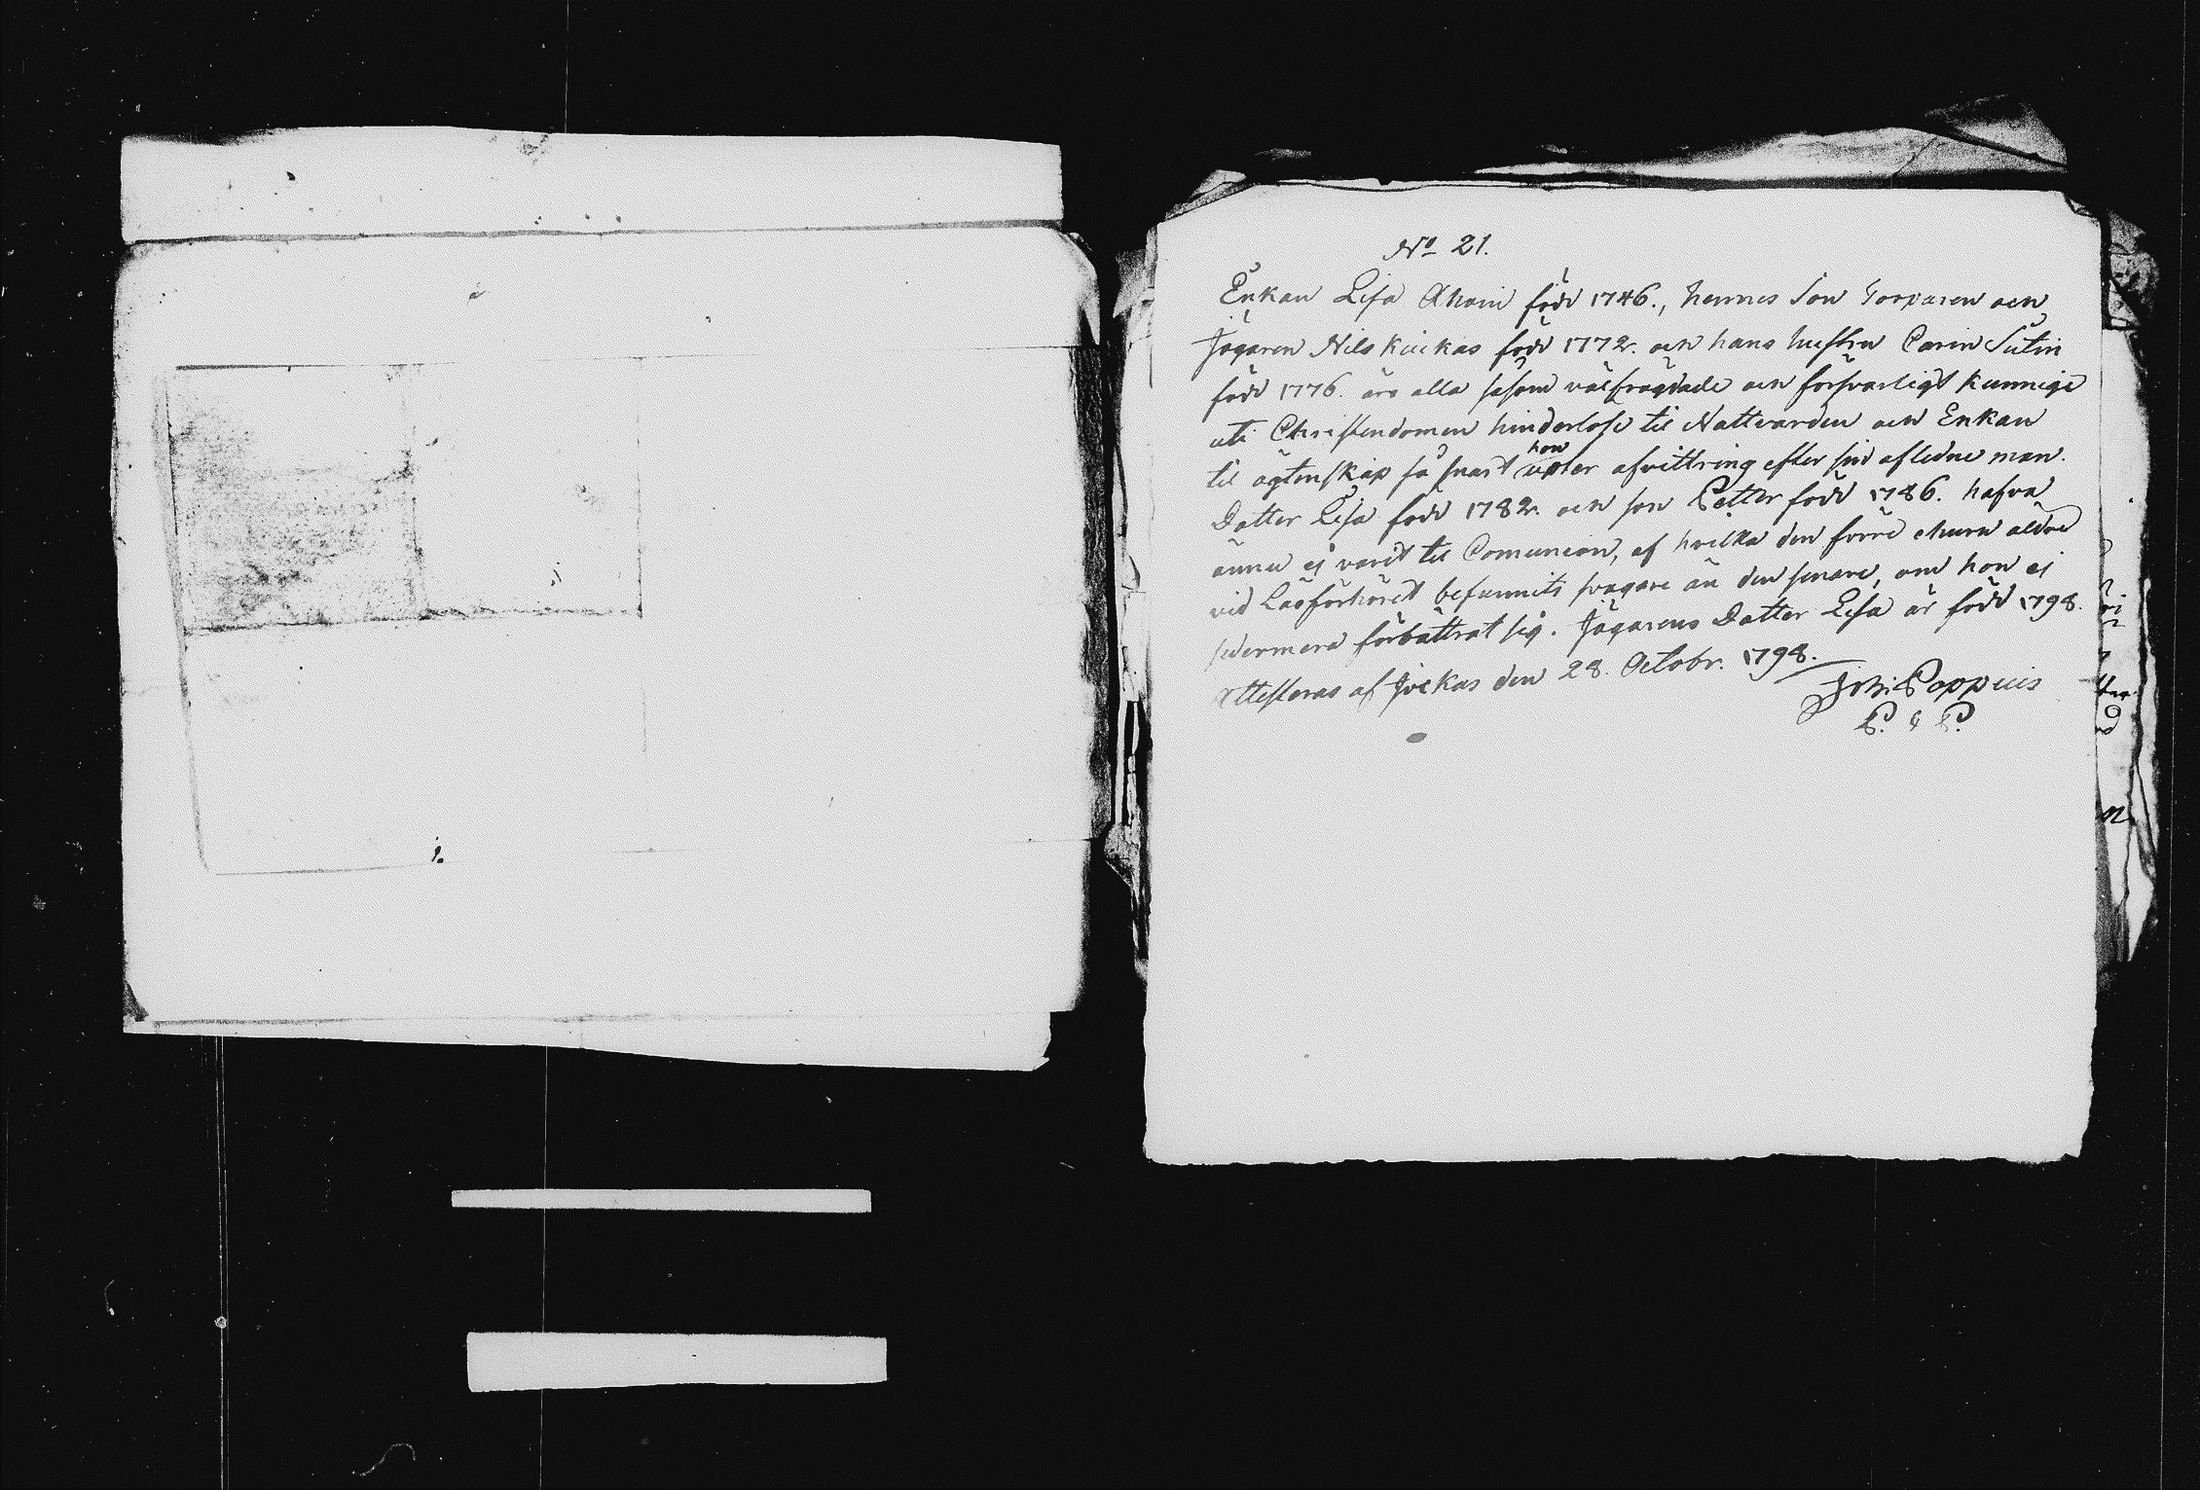 No 21.
Enkan Lisa Ahoin född 1746., hennes Son Torparen och
Jägaren Nils Kuikas född 1772. och hans hustru Carin Sutin
född 1776. äro alla såsom välfrägdade och försvarligt kunnige
uti Christendomen hinderlöse til Nattvarden och Enkan
til ägtenskap så snart hon upter afvittring efter sin afledne man.
Dotter Lisa född 1782. och son Petter född 1786. hafva
ännu ej varit til Comunion, af hvilka den förre ehuru äldre
vid Läsförhöret befunnits svagare än den senare, om hon ej
sedermera förbättrat sig. Jägarens Dotter Lisa är född 1798.
Attesteras af Jockas den 28. Octobr. 1798.
Joh: Poppius